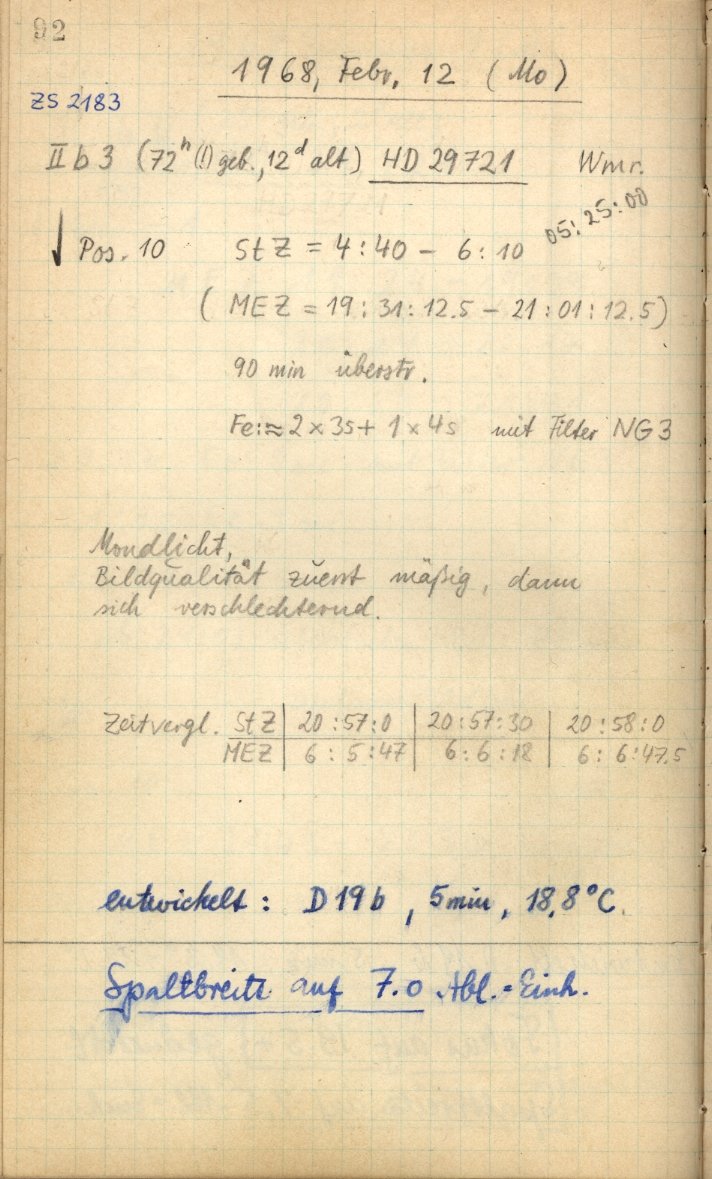 92
1968, Febr. 12 (Mo)
ZS 2183
II b 3 (72ʰ (!) geb., 12ᵈ alt) HD 29721 Wmr.
05:25:00
↓ Pos. 10 StZ = 4:40 - 6:10
( MEZ = 19:31:12.5 - 21:01:12.5)
90 min überstr.
Fe: ≈ 2 x 3s + 1 x 4s mit Filter NG3
Mondlicht,
Bildqualität zuerst mäßig, dann
sich verschlechternd.
Zeitvergl. StZ | 20:57:0 | 20:57:30 | 20:58:0
MEZ | 6:5:47 | 6:6:18 | 6:6:47.5
entwickelt: D19b, 5min, 18,8°C.
Spaltbreite auf 7.0 Abl.-Einh.